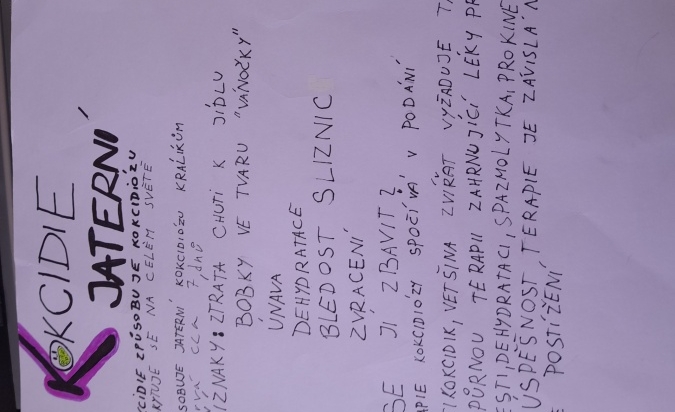 KOKCIDIE
JATERNÍ
KCIDIE ZPŮSOBUJE KOKCIDIÓZU
KYTUJE SE NA CELÉM SVĚTĚ
SOBUJE JATERNÍ KOKCIDIÓZU KRÁLÍKŮM
VÁ CCA 7 dnů
ÍZNAKY: ZTRÁTA CHUTI K JÍDLU
BOBKY VE TVARU "VÁNOČKY"
ÚNAVA
DEHYDRATACE
BLEDOST SLIZNIC
ZVRACENÍ
SE JÍ ZBAVIT?
APIE KOKCIDIÓZY SPOČÍVÁ V PODÁNÍ
TIKOKCIDIK, VĚTŠINA ZVÍŘAT VYŽADUJE
DPŮRNOU TERAPII ZAHRNUJÍCÍ LÉKY
ESTI, DEHYDRATACI, SPAZMOLYTIKA, PROKINE
ÚSPĚŠNOST TERAPIE JE ZÁVISLÁ
POSTIŽENÍ